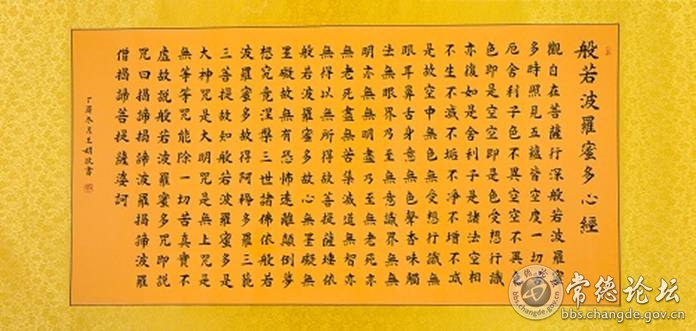 般若波羅蜜多心經
觀自在菩薩行深般若波羅蜜
多時照見五蘊皆空度一切苦
厄舍利子色不異空空不異色
色即是空空即是色受想行識
亦復如是舍利子是諸法空相
不生不滅不垢不淨不增不減
是故空中無色無受想行識無
眼耳鼻舌身意無色聲香味觸
法無眼界乃至無意識界無無
明亦無無明盡乃至無老死亦
無老死盡無苦集滅道無智亦
無得以無所得故菩提薩埵依
般若波羅蜜多故心無罣礙無
罣礙故無有恐怖遠離顛倒夢
想究竟涅槃三世諸佛依般若
波羅蜜多故得阿耨多羅三藐
三菩提故知般若波羅蜜多是
大神咒是大明咒是無上咒是
無等等咒能除一切苦真實不
虛故說般若波羅蜜多咒即說
咒曰揭諦揭諦波羅揭諦波羅
僧揭諦菩提薩婆訶
丁酉冬月王敬書
常德论坛
bbs.changde.gov.cn